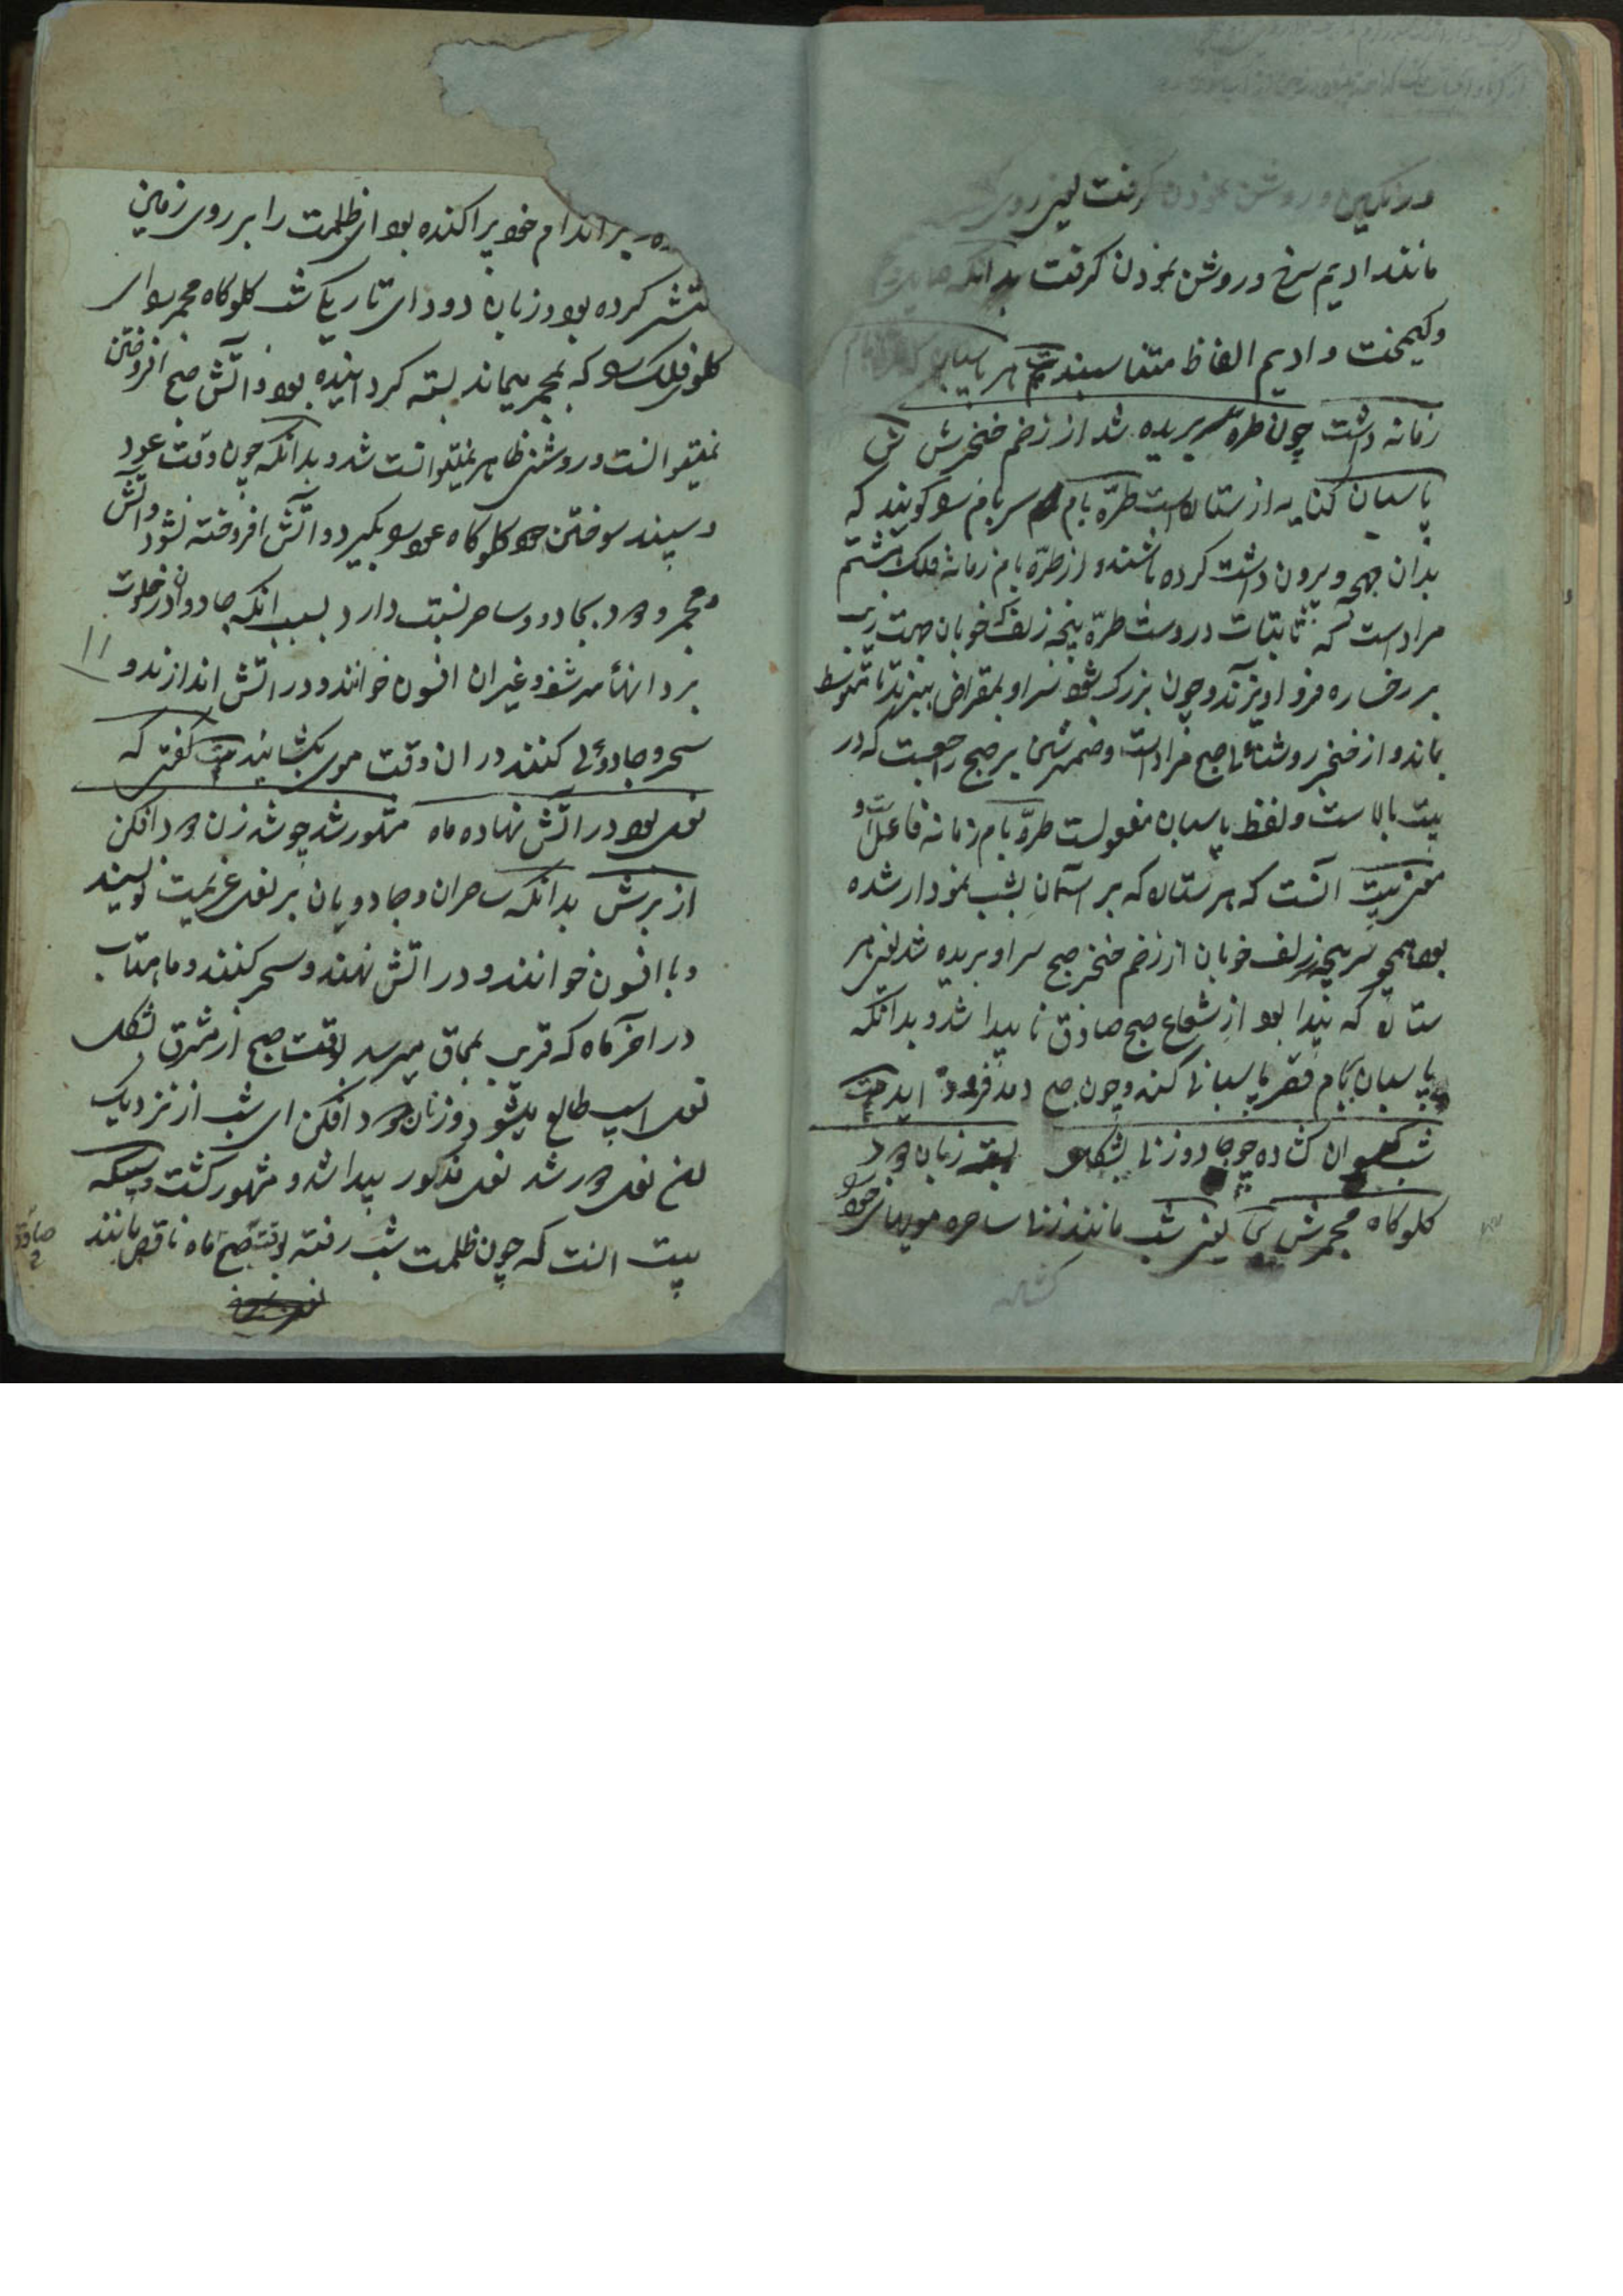 ورنگین و روشن نمودن گرفت یعنی روی
مانند ادیم سرخ و روشن نمودن گرفت بدانکه
و کیمخت و ادیم الفاظ متناسبند بیت هر پاسبان که طره بام
زمانه داشت چون طره سر بریده شد از زخم خنجرش ش
پاسبان کنایه از ستاره است طره بام سر بام سو گویند که
بدان چهچه و برون داشت کرده باشند و از طره بام زمانه فلک هشتم
مراد است که ثابتات دروست طره پیچه زلف خوبان جهت زیب
بر رخساره فرو آویزند و چون بزرگ شود سر او بمقراض ببرند تا متوسط
بماند و از خنجر روشنائی صبح مراد است و ضمیر شین بر صبح راجعست که در
بیت بالاست و لفظ پاسبان مفعولست طره بام زمانه فاعل است و
معنی بیت آنست که هر ستاره که بر آسمان بشب نمودار شده
بود همچو سر پیچه زلف خوبان از زخم خنجر صبح سر او بریده شد یعنی هر
ستاره که پیدا بود از شعاع صبح صادق ناپیدا شد و بدانکه
پاسبان ببام قصر پاسبانی کند و چون صبح دمد فرود آید بیت
شب گیسوان گشاده چو جادو زنی بشکل بسته زبان دود
گلوگاه مجمرش ش یعنی شب مانند زن ساحره مویهای خود سو
گشاده
بر اندام خود پراکنده بود ای ظلمت را بر روی زمین
منتشر کرده بود و زبان دود ای تاریکی شب گلوگاه مجمر سو ای
گلوی فلک سو که بمجمر میماند بسته گردانیده بود و آتش صبح افروختن
نمیتوانست و روشنی ظاهر نمیتوانست شد و بدانکه چون وقت عود
و سپند سوختن دود گلوگاه عود سو بگیرد و آتش افروخته نشود و آتش
و مجمر و دود بجادو و ساحر نسبت دارد بسبب آنکه جادوان در خلوت
بر دانهاء سرشف و غیر آن افسون خوانند و در آتش اندازند و
۱۱
سحر و جادوئی کنند در آن وقت موی بگشایند بیت گفتی که
نعل بود در آتش نهاده ماه مشهور شد چو شد زن دود افکن
از برش بدانکه ساحران و جادویان بر نعل عزیمت نویسند
و یا افسون خوانند و در آتش نهند و سحر کنند و ماهتاب
در آخر ماه که قریب بمحاق میرسد بوقت صبح از مشرق بشکل
نعل اسپ طالع میشود و زنان دود افکن ای شب از نزدیک
نعل دور شد نعل مذکور پیدا شد و مشهور گشت
بیت آنست که چون ظلمت شب رفته بوقت صبح ماه ناقص مانند
صادق